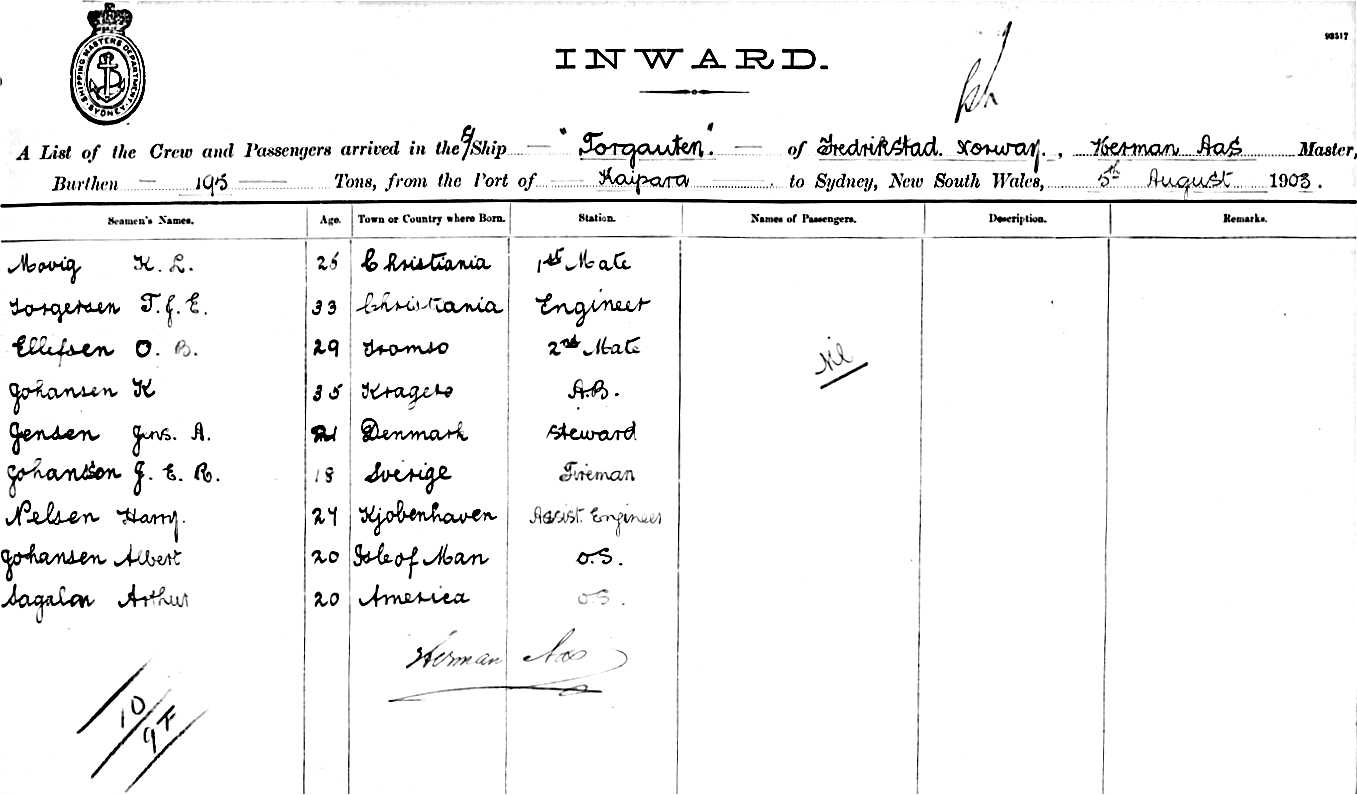 SHIPPING MASTERS DEPARTMENT
SYDNEY
93517
INWARD.
A List of the Crew and Passengers arrived in the S/Ship — "Torgauten." — of Fredrikstad. Norway., Herman Aas Master,
Burthen — 195 — Tons, from the Port of — Kaipara — to Sydney, New South Wales, 5th August 1903.
Seamen's Names. Age. Town or Country where Born. Station. Names of Passengers. Description. Remarks.
Movig K. L. 26 Christiania 1st Mate
Torgersen T. J. E. 33 Christiania Engineer
Ellefsen O. B. 29 Tromso 2nd Mate
Nil
Johansen K 35 Kragero A.B.
Jensen Jens. A. 21 Denmark Steward
Johansson J. E. R. 18 Sverige Fireman
Nelsen Harry. 27 Kjobenhaven Assist. Engineer
Johansen Albert 20 Isle of Man O.S.
Sagalon Arthur 20 America O.S.
Herman Aas
10
9F